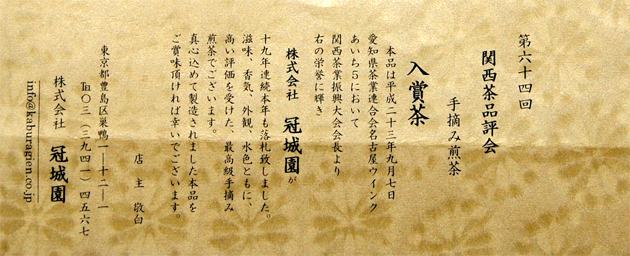 第六十四回
関西茶品評会
手摘み煎茶
入賞茶
本品は平成二十三年九月七日
愛知県茶業連合会名古屋ウインク
あいち5において
関西茶業振興大会会長より
右の栄誉に輝き
株式会社 冠城園が
十九年連続本年も落札致しました。
滋味、香気、外観、水色ともに、
高い評価を受けた、最高級手摘み
煎茶でございます。
真心込めて製造されました本品を
ご賞味頂ければ幸いでございます。
店主 敬白
東京都豊島区巣鴨一―十二―一
℡〇三(三九四一)四五六七
株式会社 冠城園
info@kaburagien.co.jp